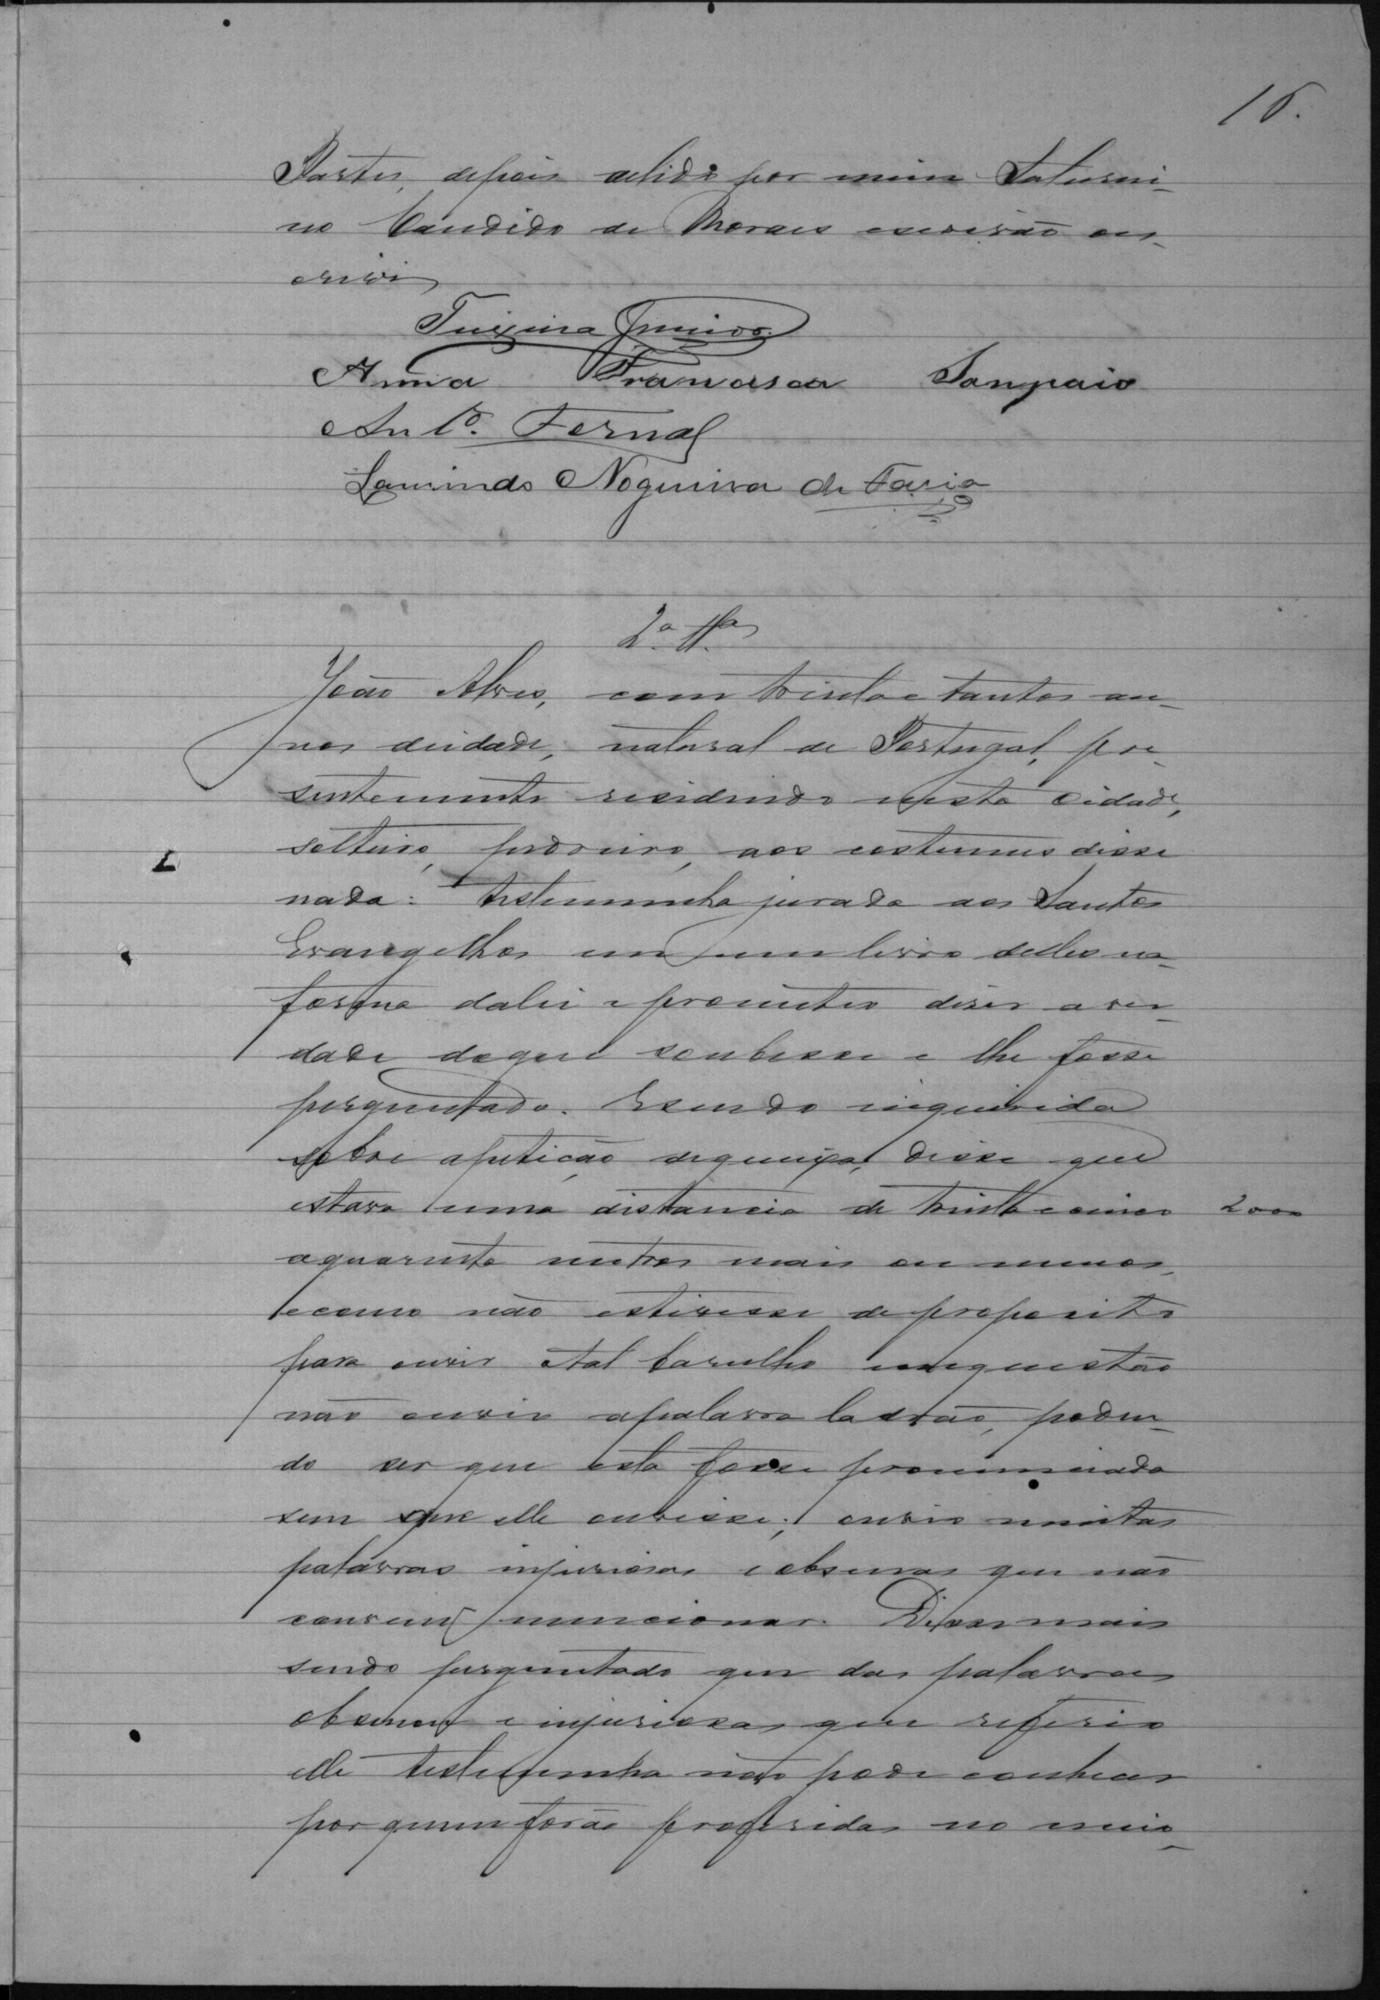 16.
Partes, depois de lido por mim Saturni-
no Candido de Moraes escrivão es-
crivi
Teixeira Junior
Anna Francisca Sampaio
Anto. Fernal
Laurindo Nogueira de Faria
2.a Ta.
João Alves, com trinta e tantos an-
nos deidade, natural de Portugal, pre-
sentemente residindo nesta Cidade,
solteiro, pedreiro, aos costumes disse
nada: testemunha jurada aos Santos
Evangelhos em um livro delles na
forma dalei e prometteu diser a ver-
dade doque soubesse e lhe fosse
perguntado. Esendo inquirida
sobre apetição dequeixa, disse que
estava uma distancia de trinta e cinco
aquarenta metros mais ou menos,
ecomo não estivesse de proposito
para ouvir otal barulho emquestão
não ouvio apalavra ladrão, poden-
do ser que esta fosse pronunciada
sem que elle ouvisse; ouvio muitas
palavras injuriosas e obsenas que não
convem mencionar. Disse mais
sendo perguntado que das palavras
obsenas e injuriosas que referio
elle testemunha não pode conhecer
por quem forão proferidas no meio
2000